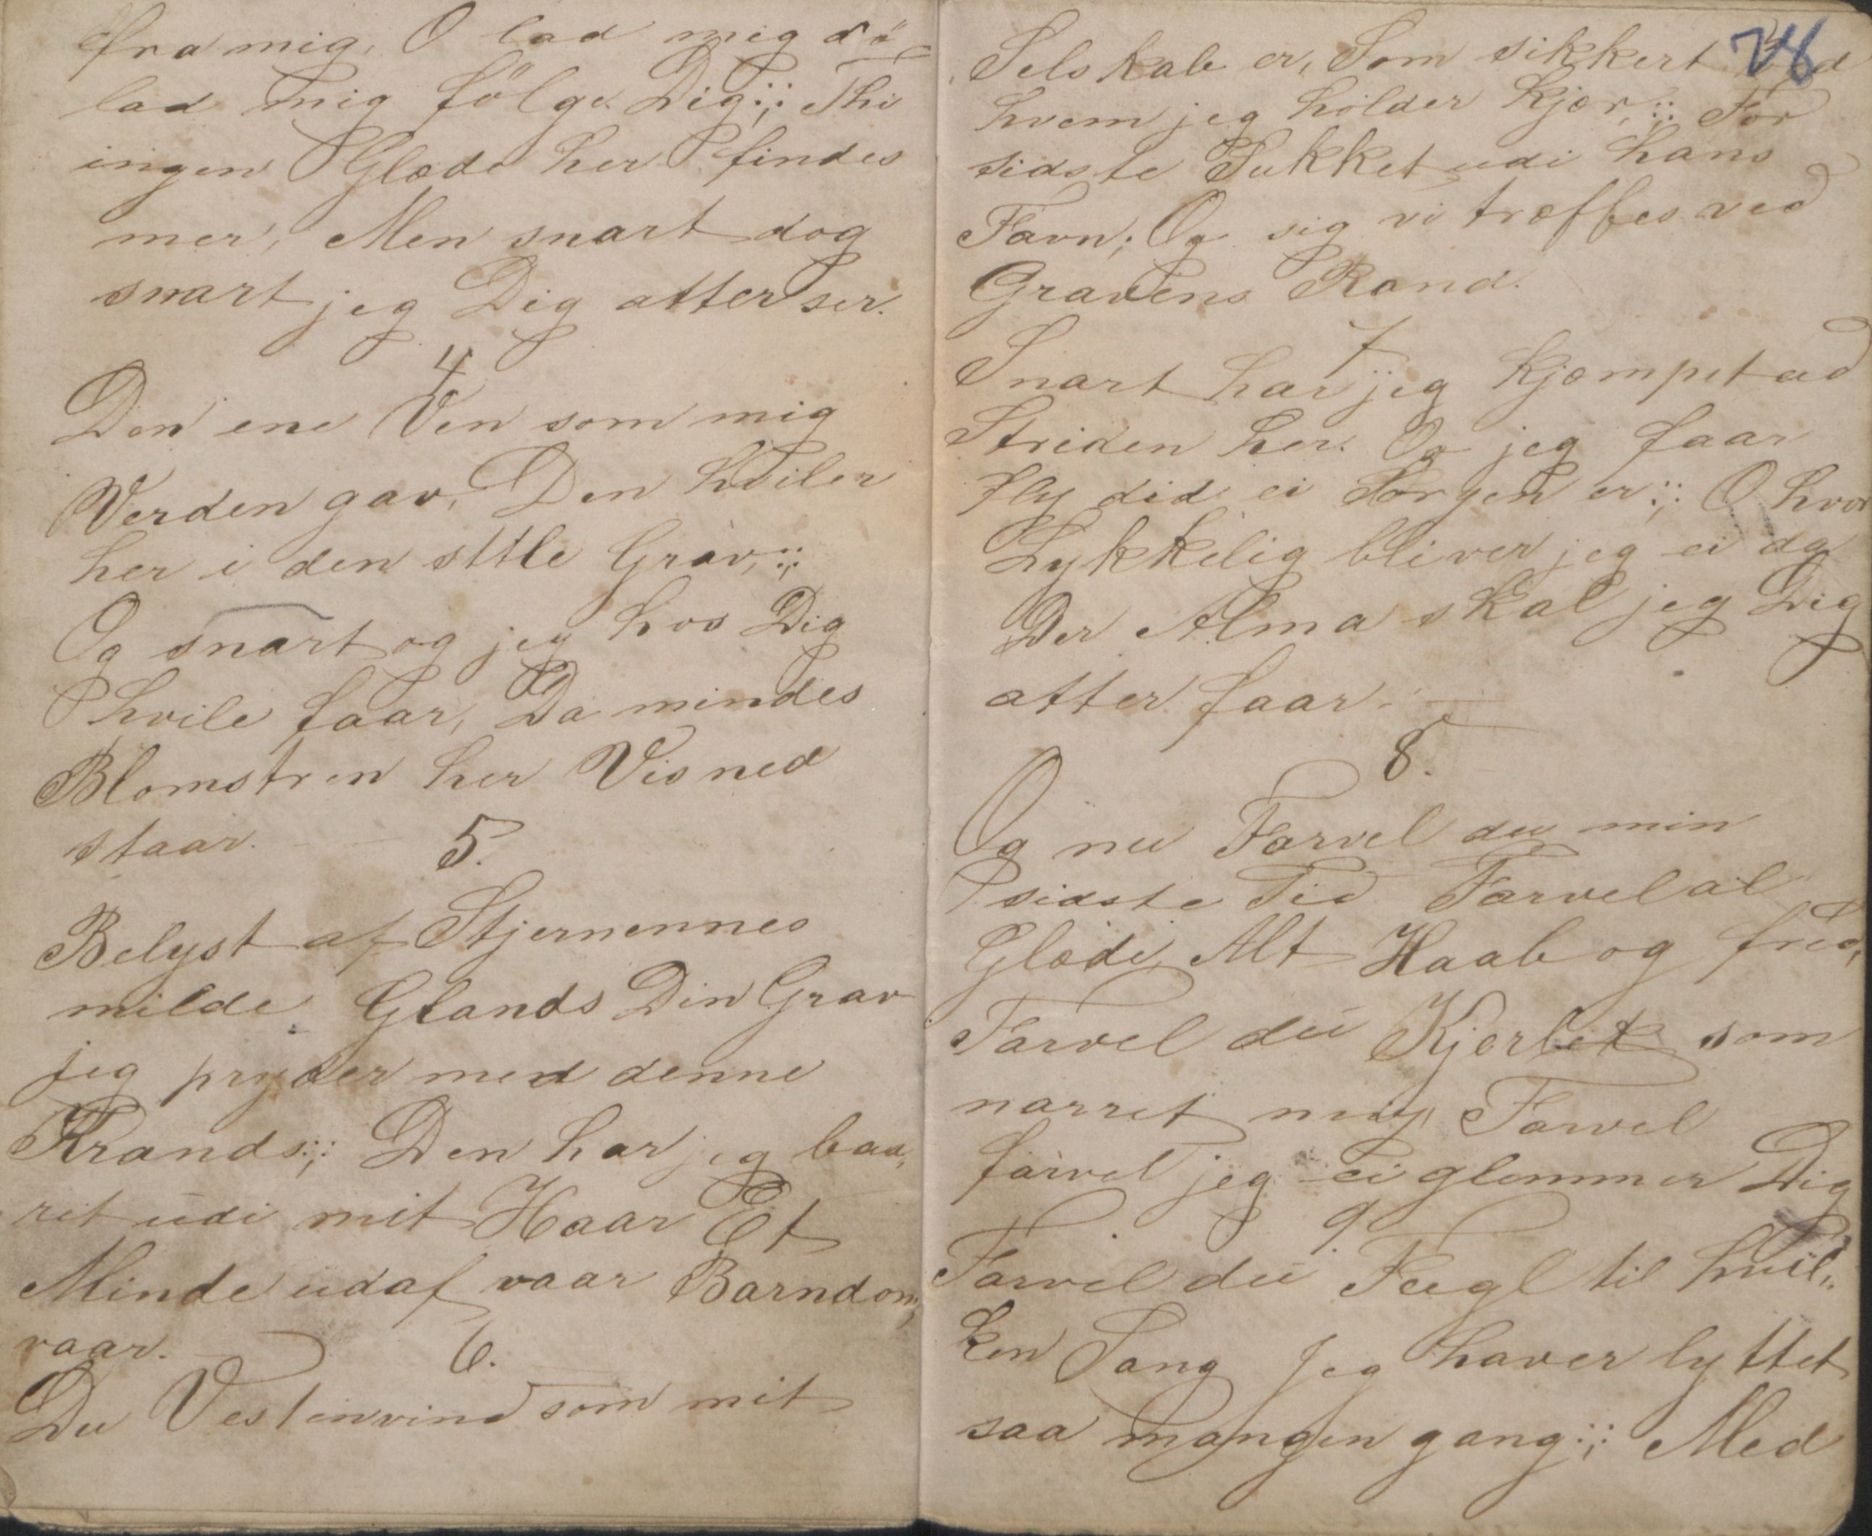 fra mig, O lad mig dö
lad mig fölge Dig;: Thi
ingen Glæde her findes
mer, Men snart dog
snart jeg Dig atter ser.
4
Den ene Ven som mig
Verden gav, Den hviler
her i den sttle Grav,;:
Og snart og jeg hos Dig
hvile faar, Da mindes
Blomstren her Visned
staar.
5.
Belyst af Stjernennes
milde Glands Din Grav
jeg pryder med denne
Krands;: Den har jeg baa,
ret udi mit Haar Et
Minde udaf vaar Barndom,
vaar.
6.
Du Vestenvind som mit
78
Selskab er, Som sikkert
hvem jeg holder Kjær,;: For
sidste Sukket udi hans
Favn; Og sig vi træffes ved
Gravens Rand.
7
Snart har jeg Kjæmpet ud
Striden her. Og jeg faar
fly did ei Sorgen er;: O hvor
Lykkelig bliver jeg ei da
Der Alma skal jeg Dig
atter faar.
8.
Og nu Farvel du min
sidste Tid Farvel al
Glæde, Alt Haab og fred,
Farvel du Kjerlet som
narret mig, Farvel
farvel jeg ei glemmer Dig
9
Farvel du Fugl til hvil,
ken Sang Jeg haver lyttet
saa mangen gang;: Med